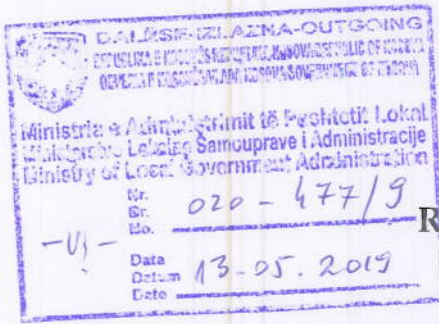 DALËSE-IZLAZNA-OUTGOING
REPUBLIKA E KOSOVËS-REPUBLIKA KOSOVA-REPUBLIC OF KOSOVA
QEVERIA E KOSOVËS-VLADA KOSOVA-GOVERNMENT OF KOSOVA
Ministria e Administrimit të Pushtetit Lokal
Ministarstvo Lokalne Samouprave i Administracije
Ministry of Local Government Administration
Nr.
Br. 020-477/9
No.
Data
Datum 13-05.2019
Date
R